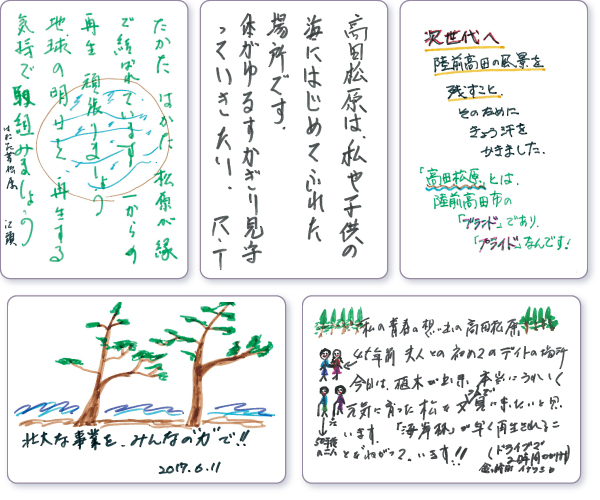 たかた はかた 松原が縁
で結ばれています 一からの
再生 頑張りましょう
地球の明日を、再生する
気持で取組みましょう
江頭
高田松原は、私や子供の
海にはじめてふれた
場所です。
体がゆるすかぎり見守
っていきたい。 R.T
次世代へ
陸前高田の風景を
残すこと。
そのために
きょう汗を
かきました。
「高田松原」とは、
陸前高田市の
「ブランド」であり、
「プライド」なんです!
壮大な事業を、みんなの"力"で!!
2017.6.11
私の青春の想い出の高田松原
45年前 夫人との初めてのデイトの場所
今日は、植木が出来、本当にうれしく
元気に育った松を又見に来たいと思
います。「海岸林」が早く再生されるこ
とを ねがって います!!
(ドライブで